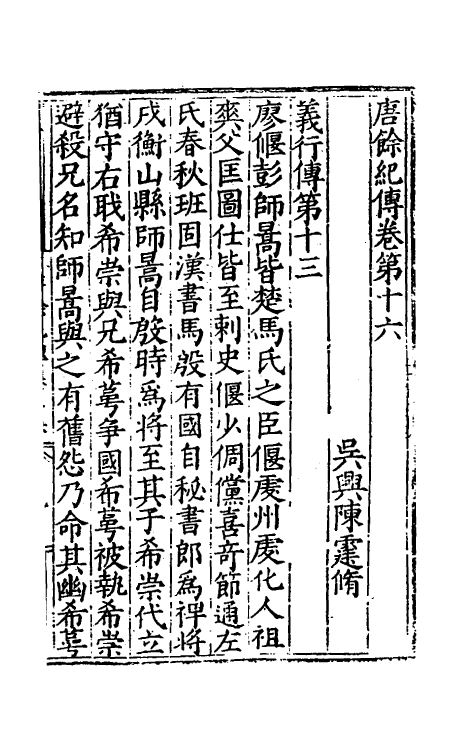 唐餘紀傳卷第十六
吳興陳霆脩
義行傳第十三
廖偃彭師暠皆楚馬氏之臣偃虔州虔化人祖
爽父匡圖仕皆至刺史偃少倜儻喜奇節通左
氏春秋班固漢書馬殷有國自秘書郎為裨將
戍衡山縣師暠自殷時為將至其子希崇代立
猶守右職希崇與兄希萼爭國希萼被執希崇
避殺兄名知師暠與之有舊怨乃命其幽希萼